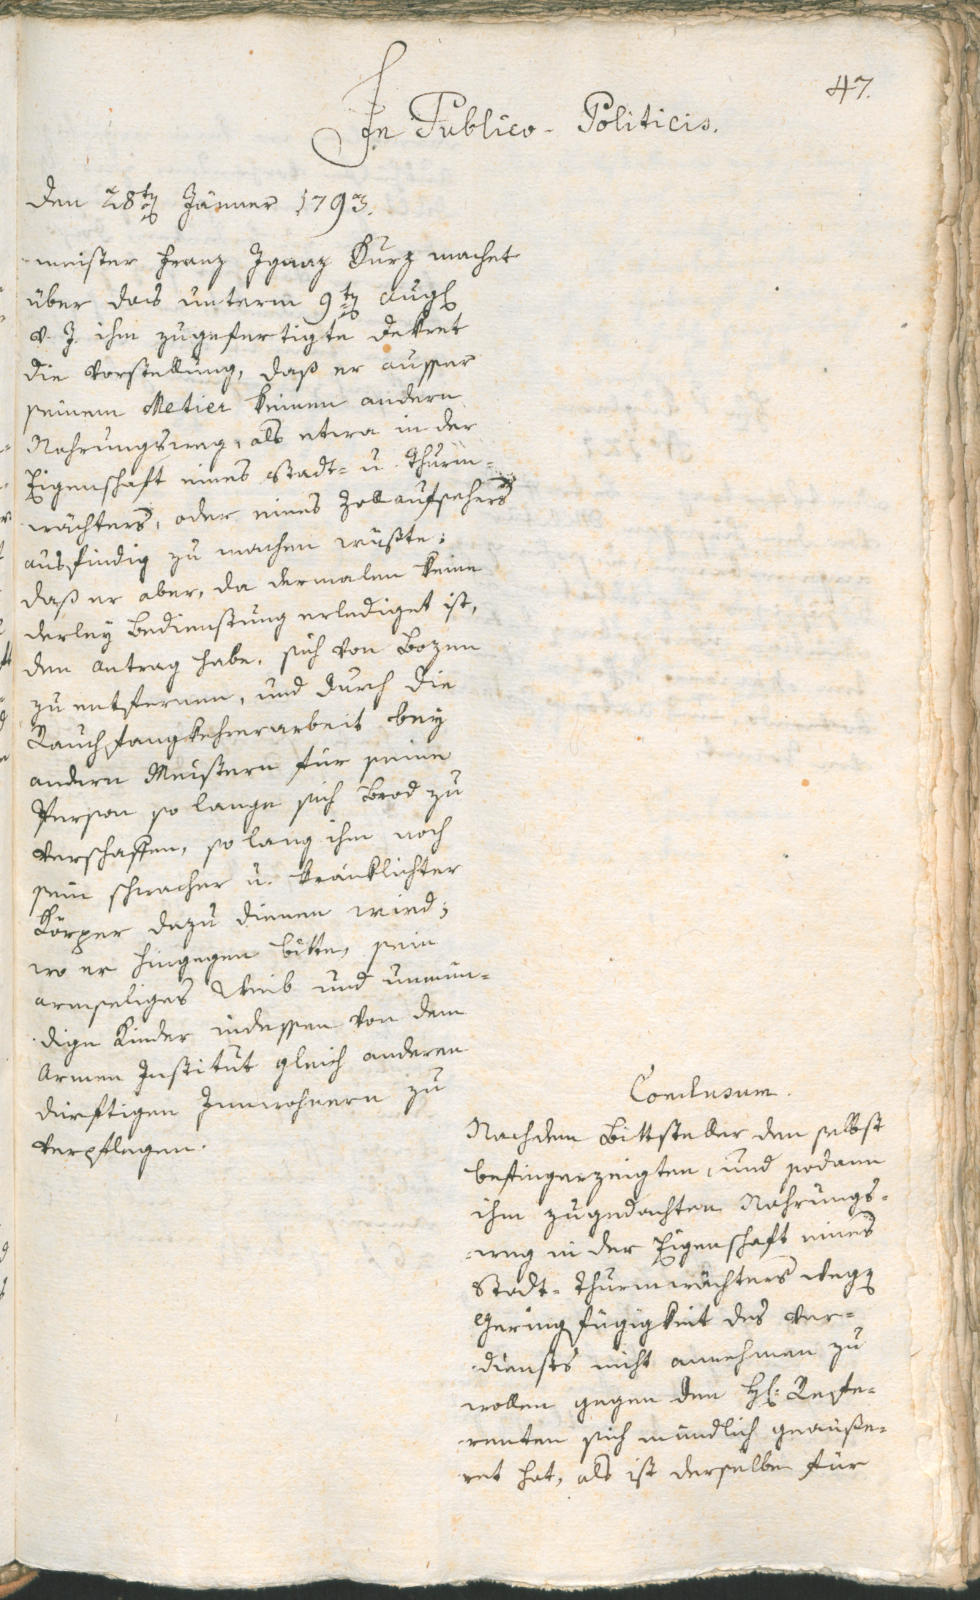 47.
In Publico-Politicis.
Den 28ten Jänner 1793.
meister Franz Ignaz Kurz machet
über das unterm 9ten Augl
v. J. ihm zugefertigte Dekret
die Vorstellung, daß er ausser
seinem Metier keinen andern
Nahrungsweg, als etwa in der
Eigenschaft eines Stadt- u. Thurm-
wächters, oder eines Zollaufsehers
ausfindig zu machen wüßte;
daß er aber, da dermalen keine
derley Bedienstung erlediget ist,
den Antrag habe, sich von Bozen
zu entfernen, und durch die
Rauchfangkehrerarbeit bey
andern Meistern für seine
Person so lange sich Brod zu
verschaffen, so lang ihm noch
sein schwacher u. kränklichter
Körper dazu dienen wird;
wo er hingegen bitte, sein
armseliges Weib und unmün-
dige Kinder indessen von dem
Armen Institut gleich anderen
dürftigen Innwohnern zu
verpflegen.
Conclusum.
Nachdem Bittsteller den selbst
befingerzeigten, und sodann
ihm zugedachten Nahrungs-
weg in der Eigenschaft eines
Stadt-Thurmwächters wegen
Geringfügigkeit des Ver-
dienstes nicht annehmen zu
wollen gegen den H: Refe-
renten sich mündlich geäuße-
ret hat, als ist derselbe für